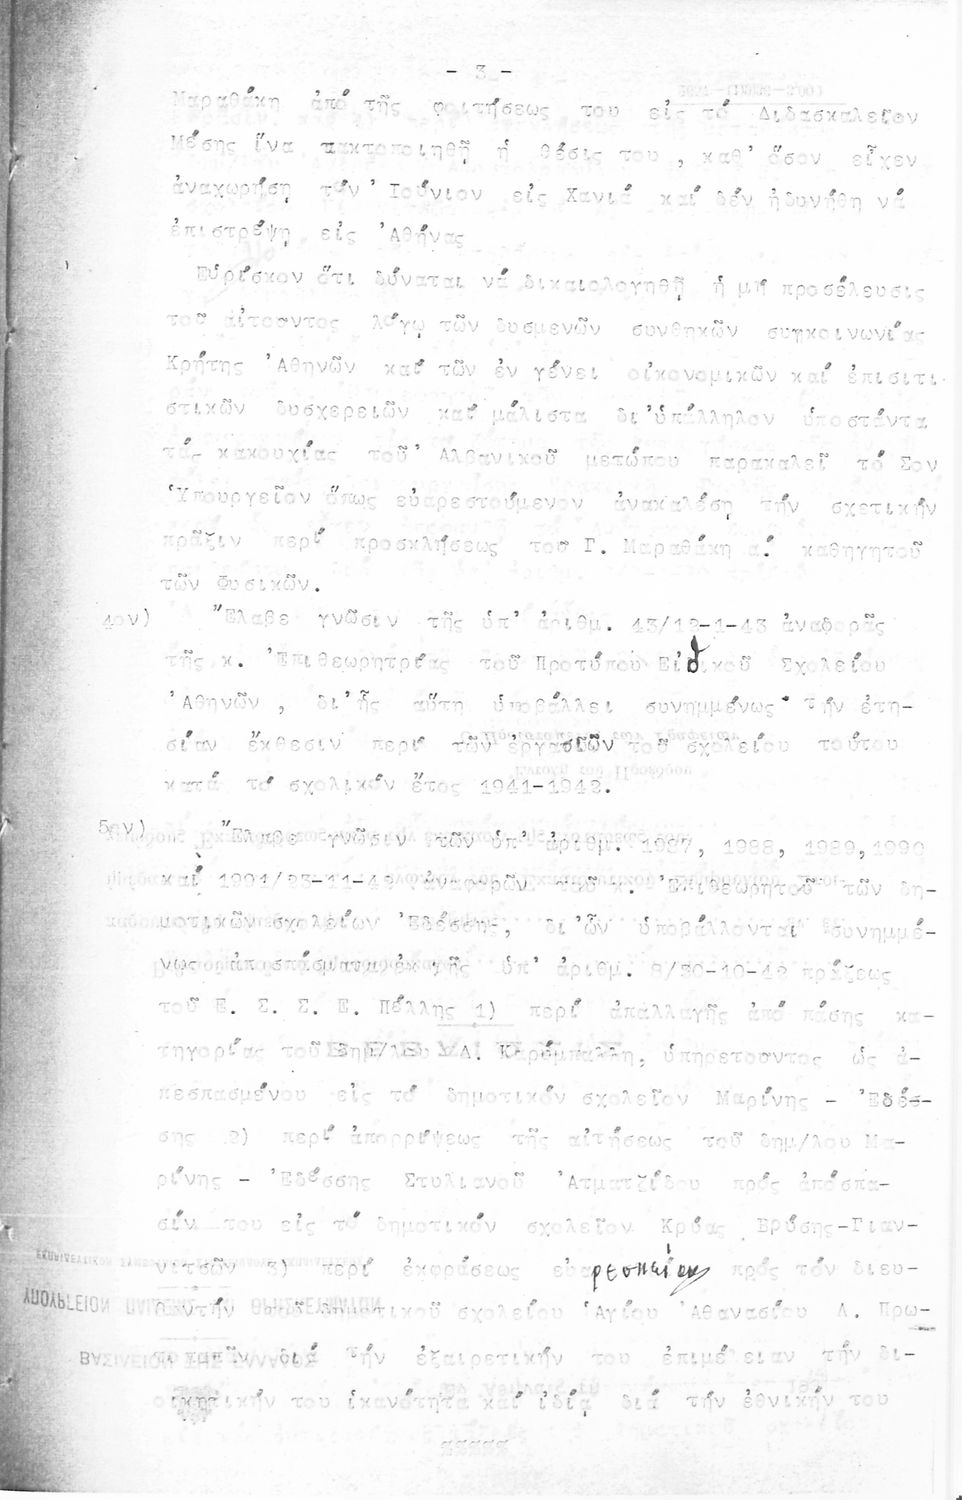 - 3 -
Μαραθάκη ἀπό τῆς φοιτήσεως του εἰς τό Διδασκαλεῖον
Μέσης ἵνα τακτοποιηθῇ ἡ θέσις του , καθ' ὅσον εἶχεν
ἀναχωρήση τόν 'Ιούνιον εἰς Χανιά καί δέν ἠδυνήθη νά
ἐπιστρέψη εἰς 'Αθήνας
Εὑρίσκον ὅτι δύναται νά δικαιολογηθῇ ἡ μή προσέλευσις
τοῦ αἰτοῦντος λόγῳ τῶν δυσμενῶν συνθηκῶν συγκοινωνίας
Κρήτης 'Αθηνῶν καί τῶν ἐν γένει οἰκονομικῶν καί ἐπισιτι-
στικῶν δυσχερειῶν καί μάλιστα δι'ὑπάλληλον ὑποστάντα
τάς κακουχίας τοῦ 'Αλβανικοῦ μετώπου παρακαλεῖ τό Σον
'Υπουργεῖον ὅπως εὐαρεστούμενον ἀνακαλέση τήν σχετικήν
πρᾶξιν περί προσκλήσεως τοῦ Γ. Μαραθάκη α.' καθηγητοῦ
τῶν Φυσικῶν.
4ον) "Ελαβε γνῶσιν τῆς ὑπ' ἀριθμ. 43/12-1-43 ἀναφορᾶς
τῆς κ. 'Επιθεωρητρίας τοῦ Προτύπου Εἰδικοῦ Σχολείου
'Αθηνῶν , δι'ἧς αὕτη ὑποβάλλει συνημμένως τήν ἐτη-
σίαν ἔκθεσιν περί τῶν ἐργασιῶν τοῦ σχολείου τούτου
κατά τό σχολικόν ἔτος 1941-1942.
5ον) "Ελαβε γνῶσιν τῶν ὑπ' ἀριθμ. 1987, 1988, 1989,1990
καί 1991/23-11-42 ἀναφορῶν τοῦ κ. 'Επιθεωρητοῦ τῶν δη-
μοτικῶν σχολείων 'Εδέσσης, δι'ὧν ὑποβάλλονται συνημμέ-
νως ἀποσπάσματα ἐκ τῆς ὑπ' ἀριθμ. 8/30-10-42 πράξεως
τοῦ Ε. Σ. Σ. Ε. Πέλλης 1) περί ἀπαλλαγῆς ἀπό πάσης κα-
τηγορίας τοῦ δημ/λου Δ. Καρύμπαλλη, ὑπηρετοῦντος ὡς ἀ-
πεσπασμένου εἰς τό δημοτικόν σχολεῖον Μαρίνης - 'Εδέσ-
σης 2) περί ἀπορρίψεως τῆς αἰτήσεως τοῦ δημ/λου Μα-
ρίνης - 'Εδέσσης Στυλιανοῦ 'Ατματζίδου πρός ἀπόσπα-
σίν του εἰς τό δημοτικόν σχολεῖον Κρύας Βρύσης-Γιαν-
νιτσῶν 3) περί ἐκφράσεως εὐαρεσκείας πρός τόν διευ-
θυντήν τοῦ δημοτικοῦ σχολείου 'Αγίου 'Αθανασίου Δ. Πρω-
διά τήν ἐξαιρετικήν του ἐπιμέλειαν τήν δι-
οικητικήν του ἱκανότητα καί ἰδίᾳ διά τήν ἐθνικήν του